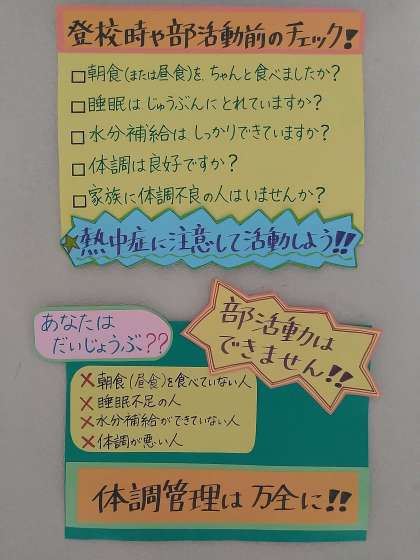 登校時や部活動前のチェック!
□朝食(または昼食)を、ちゃんと食べましたか?
□睡眠は じゅうぶんに とれていますか?
□水分補給は しっかりできていますか?
□体調は良好ですか?
□家族に体調不良の人はいませんか?
熱中症に注意して活動しよう!!
あなたは
だいじょうぶ??
部活動は
できません!!
×朝食(昼食)を食べていない人
×睡眠不足の人
×水分補給ができていない人
×体調が悪い人
体調管理は 万全に!!